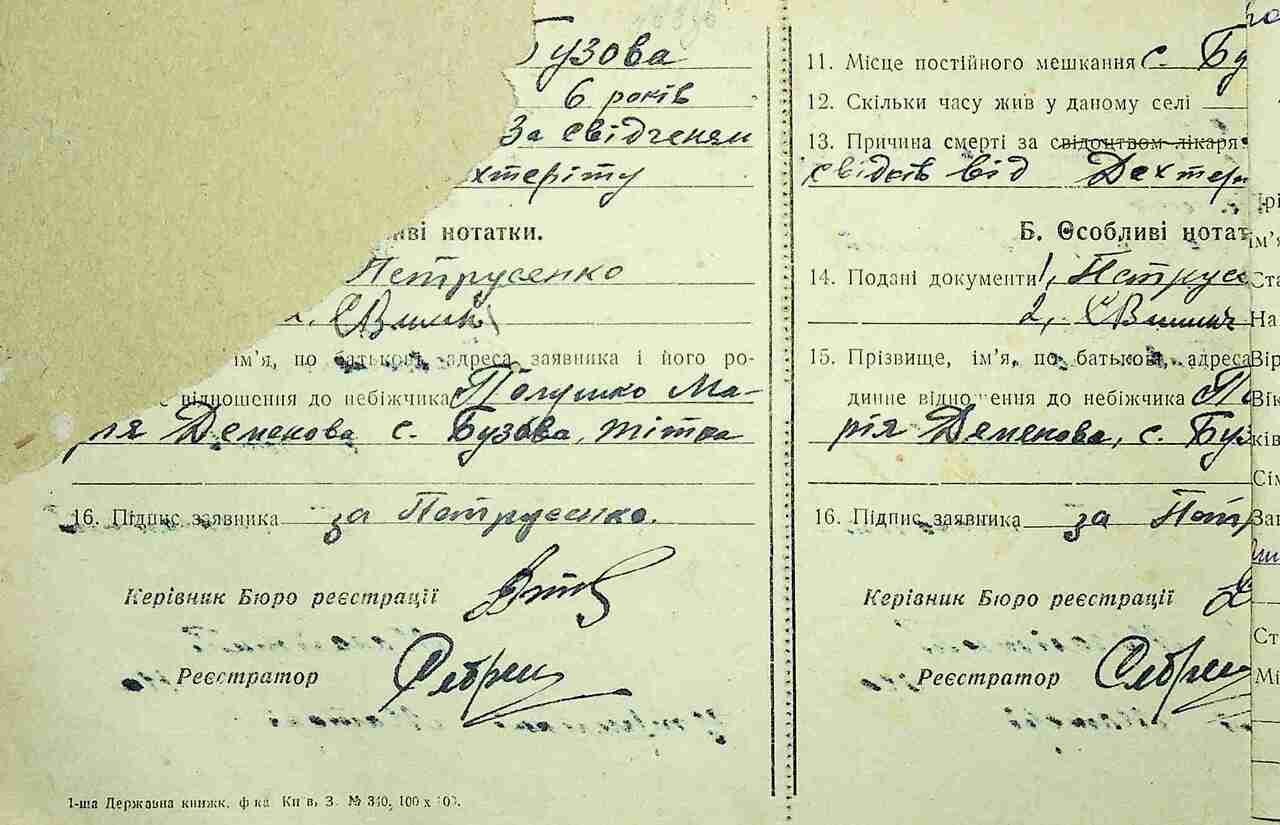 Бузова
6 років
За свідченєм
хтеріту
иві нотатки.
Петрусенко
2,
ім’я, по батькові, адреса заявника і його ро-
відношення до небіжчика Полушко Ма-
рія Деменова с. Бузова, тітка
16. Підпис заявника за Петрусенко.
Керівник Бюро реєстрації
Реєстратор
1-ша Державна книжк. ф-ка Київ, З. № 340, 100 х 100.
11. Місце постійного мешкання с. Бу
12. Скільки часу жив у даному селі
13. Причина смерті за свідоцтвом лікаря
свідків від Дехтер
Б. Особливі нотат
14. Подані документи 1, Петрусе
2,
15. Прізвище, ім’я, по батькові, адреса
динне відношення до небіжчика П
рія Деменова, с. Буз
16. Підпис заявника за Петр
Керівник Бюро реєстрації
Реєстратор
Прі
ім’я
Ста
На
Вір
Вік
ків
Сім
Зая
Ст
Мі